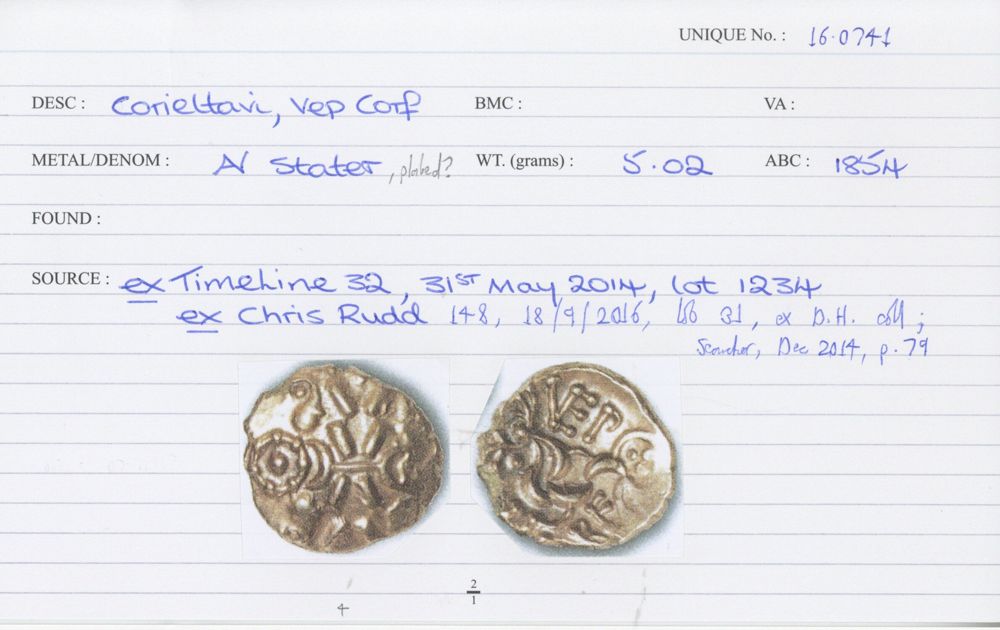 UNIQUE No. : 16.0741
DESC : Corieltavi, Vep Corf BMC : VA :
METAL/DENOM : AV Stater, plated? WT. (grams) : 5.02 ABC : 1854
FOUND :
SOURCE : ex TimeLine 32, 31ST May 2014, lot 1234
ex Chris Rudd 148, 18/9/2016, lot 31, ex D.H. coll ;
Searcher, Dec 2014, p. 79
VEP
2
1
4